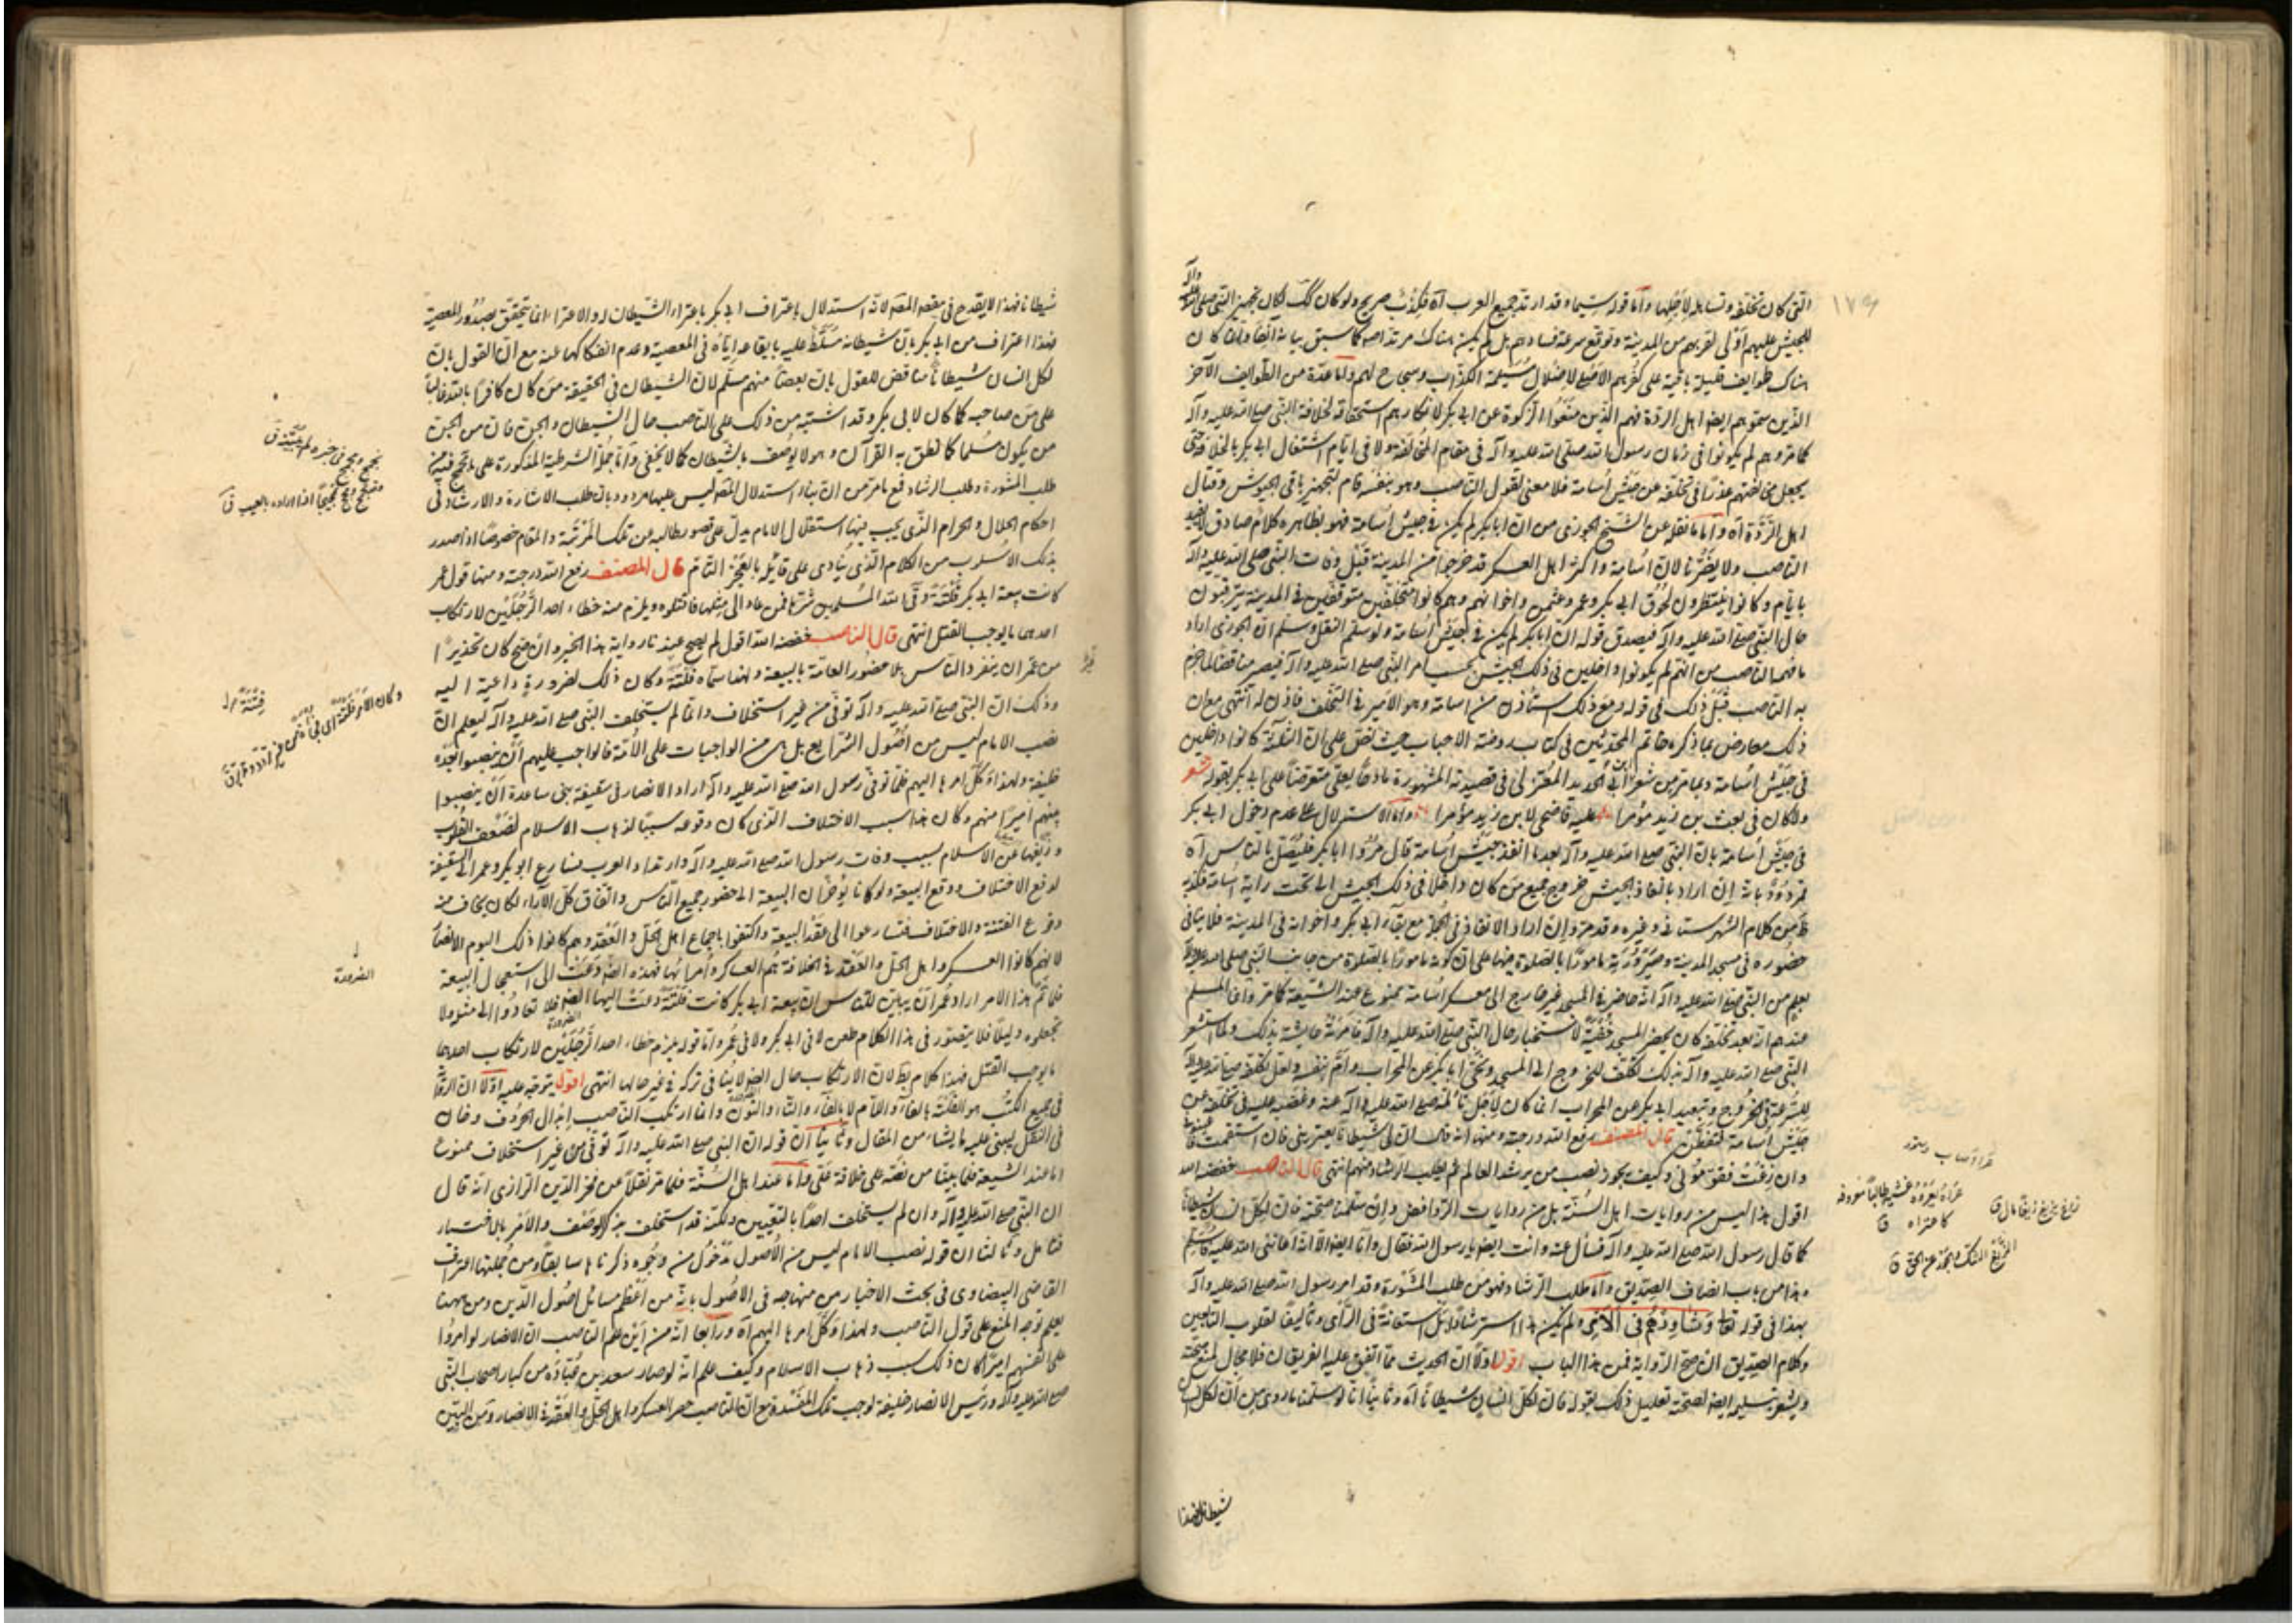 التي كان تخلفه وتساهله لأجلها وأما قوله سيما وقد ارتد جميع العرب آه فكذب صريح ولو كان كك لكان تجهيز النبي صلى الله عليه وآله
للجيش عليهم أولى لقربهم من المدينة وتوقع سرعة فسادهم بل لم يكن هناك مرتد أصلا كما سبق بيانه آنفا وإنما كان
هناك طوايف قليلة باقية على كفرهم الأصلي لإضلال مسيلمة الكذاب وسجاح لهم وأما عدة من الطوايف الآخر
الذين سموهم أيضا أهل الردة فهم الذين منعوا الزكوة عن أبي بكر لإنكارهم استحقاقه لخلافة النبي صلى الله عليه وآله
كما مر وهم لم يكونوا في زمان رسول الله صلى الله عليه وآله في مقام المخالفة ولا في أيام اشتغال أبي بكر بالخلافة حتى
يجعل مخالفتهم عذرا في تخلفه عن جيش أسامة فلا معنى لقول الناصب وهو بنفسه قام لتجهيز باقي الجيوش وقتال
أهل الردة آه وأما ما نقله عن الشيخ الجزري من أن أبا بكر لم يكن في جيش أسامة فهو بظاهره كلام صادق
الناصب ولا يضرنا لأن أسامة وأكثر أهل العسكر قد خرجوا من المدينة قبل وفات النبي صلى الله عليه وآله
بأيام وكانوا ينتظرون لحوق أبي بكر وعمر وعثمان وإخوانهم وهم كانوا متخلفين متوقفين في المدينة يترقبون
حال النبي صلى الله عليه وآله فيصدق قوله أن أبا بكر لم يكن في جيش أسامة ولو سلم النقل وسلم أن الجزري أراد
ما فهمه الناصب من أنهم لم يكونوا داخلين في ذلك الجيش بحسب أمر النبي صلى الله عليه وآله فيصير مناقضا لما جزم
به الناصب قبل ذلك في قوله ومع ذلك استأذن من أسامة وهو الأمير في التخلف فأذن له انتهى مع أن
ذلك معارض بما ذكره خاتم المحدثين في كتاب روضة الأحباب حيث نص على أن الثلثة كانوا داخلين
في جيش أسامة وبما مر من شعر ابن أبي الحديد المعتزلي في قصيدته المشهورة مادحا لعلي متعرضا على أبي بكر بقوله شعر
ولا كان في بعث بن زيد مؤمرا عليه فأضحى لابن زيد مؤمرا وأما الاستدلال على عدم دخول أبي بكر
في جيش أسامة بأن النبي صلى الله عليه وآله بعد ما أنفذ جيش أسامة قال مروا أبا بكر فليصل بالناس آه
فمردود بأنه إن أراد بإنفاذ الجيش خروج جميع من كان داخلا في ذلك الجيش إلى تحت راية أسامة
من كلام الشهرستاني وغيره وقد مر وإن أراد الإنفاذ في الجملة مع بقاء أبي بكر وإخوانه في المدينة فلا ينافي
حضوره في مسجد المدينة وصيرورته مأمورا بالصلوة فيها على أن كونه مأمورا بالصلوة من جانب النبي صلى الله عليه وآله
بعلم من النبي صلى الله عليه وآله أنه حاضر في المسجد غير خارج إلى معسكر أسامة ممنوع عند الشيعة كما مر وإنما المسلم
عندهم أنه بعد تخلفه كان يحضر المسجد خفية لاستخبار حال النبي صلى الله عليه وآله فأمرته عايشة بذلك ولما استشعر
النبي صلى الله عليه وآله بذلك تكلف للخروج إلى المسجد ونحى أبا بكر عن المحراب وأم بنفسه ولعل تكلفه صلى الله عليه وآله
للسرعة في الخروج وتبعيد أبي بكر عن المحراب إنما كان لأجل تألمه صلى الله عليه وآله عنه وغضبه عليه في تخلفه عن
جيش أسامة فتفطن قال المصنف رفع الله درجته ومنها أنه قال إن لي شيطانا يعتريني فإن استقمت فأعينوني
وإن زغت فقوموني وكيف يجوز نصب من يرشد العالم ثم يطلب الرشاد منهم انتهى قال الناصب خفضه الله
أقول هذا ليس من روايات أهل السنة بل من روايات الروافض وإن سلمنا صحته فإن لكل إنسان شيطانا
كما قال رسول الله صلى الله عليه وآله فسأل عنه وأنت أيضا يا رسول الله فقال وأنا أيضا إلا أنه أعانني الله عليه فأسلم
وهذا من باب إنصاف الصديق وأما طلب الرشاد فهو من طلب المشورة وقد أمر رسول الله صلى الله عليه وآله
بهذا في قوله تعالى وشاورهم في الأمر ولم يكن هذا استرشادا بل استعانة في الرأي وتأليفا لقلوب التابعين
وكلام الصديق إن صح الرواية فمن هذا الباب أقول أولا أن الحديث مما اتفق عليه الفريقان فلا مجال لمنع صحته
ويشعر بتسليمه أيضا لصحته تعليل ذلك بقوله فإن لكل إنسان شيطانا آه وثانيا أنا لو سلمنا ما روى من أن لكل
شيطانا فهذا
١٧٩
عراه يعروه غشيه طالبا معروفه
كاعتراه ق
زاغ يزيغ زيغا مال ق
الزيغ الشك والجور عن الحق ق
شيطانا فهذا لا يقدح في مقصد المصنف لأنه استدلال باعتراف أبي بكر باعتراء الشيطان له والاعتراء إنما يتحقق بصدور المعصية
فهذا اعتراف من أبي بكر بأن شيطانه مسلط عليه بإيقاعه إياه في المعصية وعدم انفكاكها عنه مع أن القول بأن
لكل إنسان شيطانا مناقض للقول بأن بعضا منهم مسلم لأن الشيطان في الحقيقة من كان كافرا بالله غالبا
على من صاحبه كما كان لأبي بكر وقد اشتبه من ذلك على الناصب حال الشيطان والجن فإن من الجن
من يكون مسلما كما نطق به القرآن وهو لا يوصف بالشيطان كما لا يخفى وأما حمل الشرطية المذكورة على
طلب المشورة وطلب الرشاد فع ما مر من أن بناء استدلال المصنف ليس عليها مردود بأن طلب الاشارة والارشاد في
أحكام الحلال والحرام الذي يجب فيها استقلال الإمام يدل على قصور طالبه عن تلك المرتبة والمقام خصوصا إذا صدر
بذلك الأسلوب من الكلام الذي ينادي على قائله بالعجز التام قال المصنف رفع الله درجته ومنها قول عمر
كانت بيعة أبي بكر فلتة وقى الله المسلمين شرها فمن عاد إلى مثلها فاقتلوه ويلزم منه خطاء أحد الرجلين لارتكاب
أحدهما ما يوجب القتل انتهى قال الناصب خفضه الله أقول لم يصح عندنا رواية هذا الخبر وإن صح كان تحذيرا
من عمر أن ينفرد الناس بلا حضور العامة بالبيعة ولهذا سماه فلتة وكان ذلك لضرورة داعية إليه
وذلك أن النبي صلى الله عليه وآله توفي من غير استخلاف وإنما لم يستخلف النبي صلى الله عليه وآله ليعلم أن
نصب الإمام ليس من أصول الشرايع بل هي من الواجبات على الأمة فالواجب عليهم أن ينصبوا بعده
خليفة ولهذا وكل أمرها إليهم فلما توفي رسول الله صلى الله عليه وآله أراد الأنصار في سقيفة بني ساعدة أن ينصبوا
بينهم أميرا منهم وكان هذا سبب الاختلاف الذي كان وقوعه سببا لذهاب الإسلام لضعف القلوب
وزيغها عن الإسلام بسبب وفات رسول الله صلى الله عليه وآله وارتداد العرب فسارع أبو بكر وعمر إلى السقيفة
لدفع الاختلاف ووقع البيعة ولو كانا يؤخران البيعة إلى حضور جميع الناس واتفاق كل الآراء لكان يخاف منه
وقوع الفتنة والاختلاف فتسارعوا إلى عقد البيعة واكتفوا بإجماع أهل الحل والعقد وهم كانوا ذلك اليوم الأنصار
لأنهم كانوا العسكر وأهل الحل والعقد في الخلافة هم العساكر وأمراؤها فهذه الضرورة دعت إلى استعجال البيعة
فلما تم هذا الأمر أراد عمر أن يبين للناس أن بيعة أبي بكر كانت فلتة دعت إليها الضرورة فلا تعادوا إلى مثله ولا
تجعلوه دليلا فلا يتصور في هذا الكلام طعن لا في أبي بكر ولا في عمر وأما قوله يلزم خطاء أحد الرجلين لارتكاب أحدهما
ما يوجب القتل فهذا كلام بطلان الارتكاب حال الضرورة لا ينافي تركه في غير حالها انتهى أقول يتوجه عليه أولا أن
في جميع الكتب هو الفلتة بالفاء واللام لا بالفاء والتاء والنون وإنما ارتكب الناصب إبدال الحروف وخان
في النقل ليبني عليه ما يشاء من المقال وثانيا أن قوله أن النبي صلى الله عليه وآله توفي من غير استخلاف ممنوع
أما عند الشيعة فلما بينا من نصه على خلافة علي وأما عند أهل السنة فلما مر نقلا عن فخر الدين الرازي أنه قال
أن النبي صلى الله عليه وآله وإن لم يستخلف أحدا بالتعيين ولكنه قد استخلف بذكر الوصف والأمر بالاختيار
فتأمل وثالثا أن قوله نصب الإمام ليس من الأصول مدخول من وجوه ذكرناها سابقا ومن جملتها اعتراف
القاضي البيضاوي في بحث الأخبار من منهاجه في الأصول بأنه من أعظم مسائل أصول الدين ومن ههنا
يعلم توجه المنع على قول الناصب ولهذا وكل أمرها إليهم آه ورابعا أنه من أين علم الناصب أن الأنصار لو أمروا
على أنفسهم أميرا كان ذلك سبب ذهاب الإسلام وكيف علم أنه لو صار سعد بن عبادة من كبار أصحاب النبي
صلى الله عليه وآله ورئيس الأنصار خليفة لوجب تلك المفسدة مع أن الناصب حصر العسكر وأهل الحل والعقد في الأنصار ومن البين
الضرورة